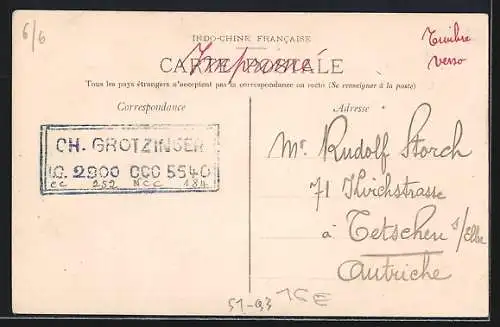 6/6
INDO-CHINE FRANÇAISE
CARTE POSTALE
Imprimé
Timbre
verso
Tous les pays étrangers n'acceptent pas la correspondance au recto (Se renseigner à la poste)
Correspondance
CH. GROTZINGER
I.C. 2900 CCC 5540
CC 252 NCC 184
Adresse
Mr. Rudolf Storch
71
à Tetschen s/Elbe
Autriche
51-93
15E